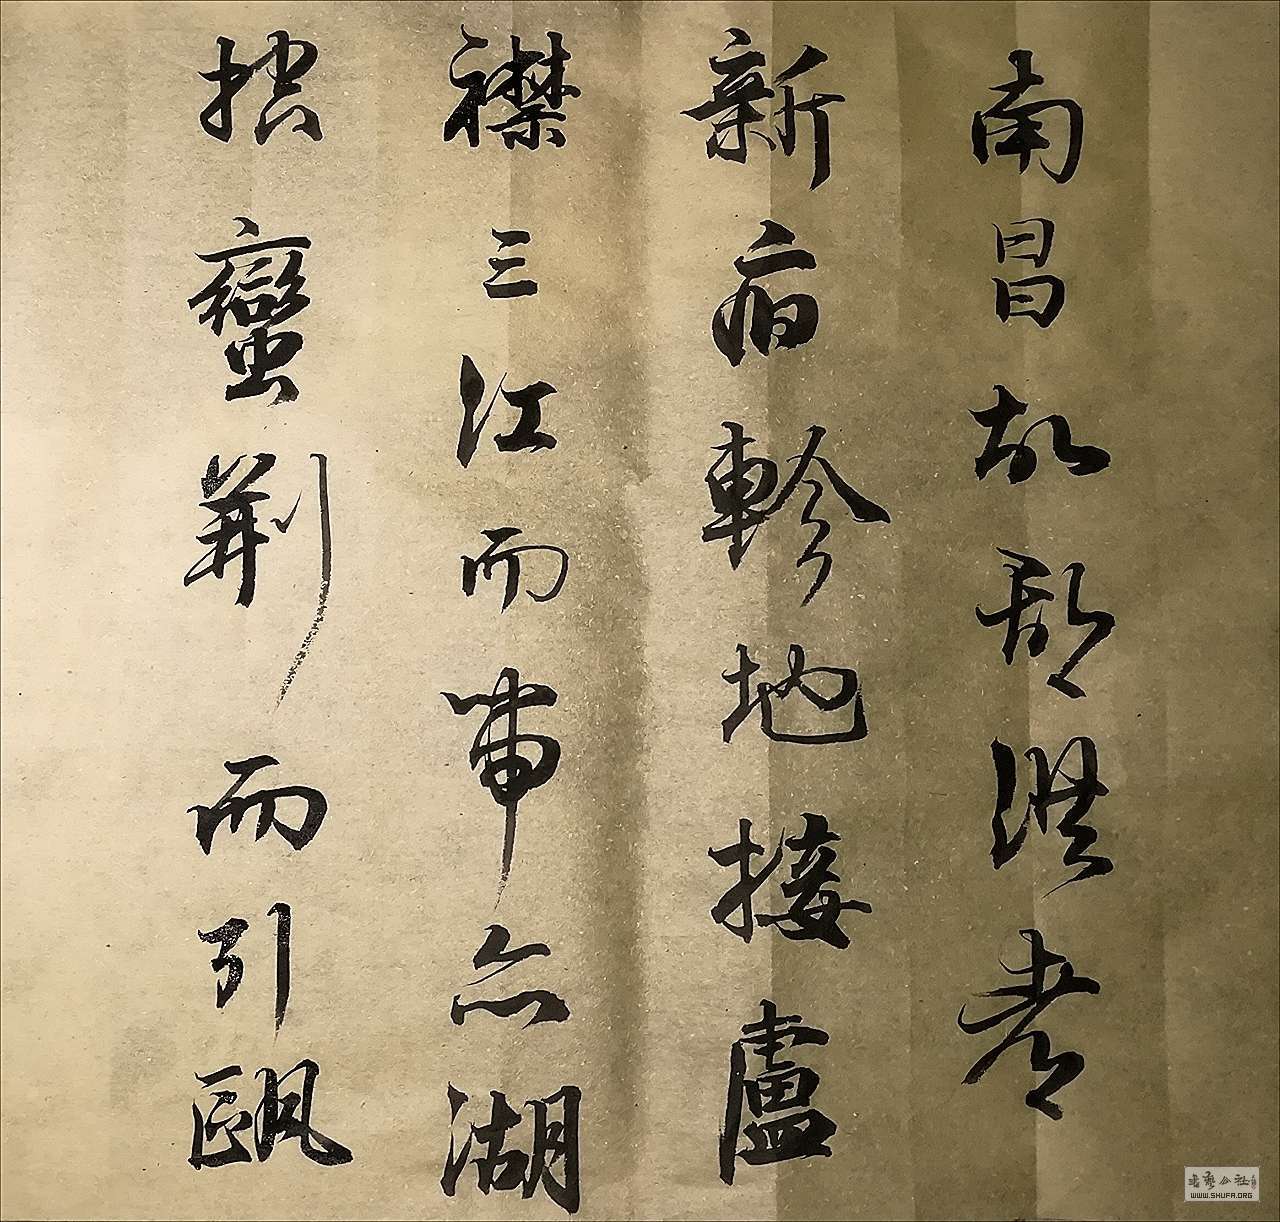 南昌故郡洪都
新府軫地接盧
襟三江而帶五湖
控蠻荊而引甌
書藝公社
WWW.SHUFA.ORG